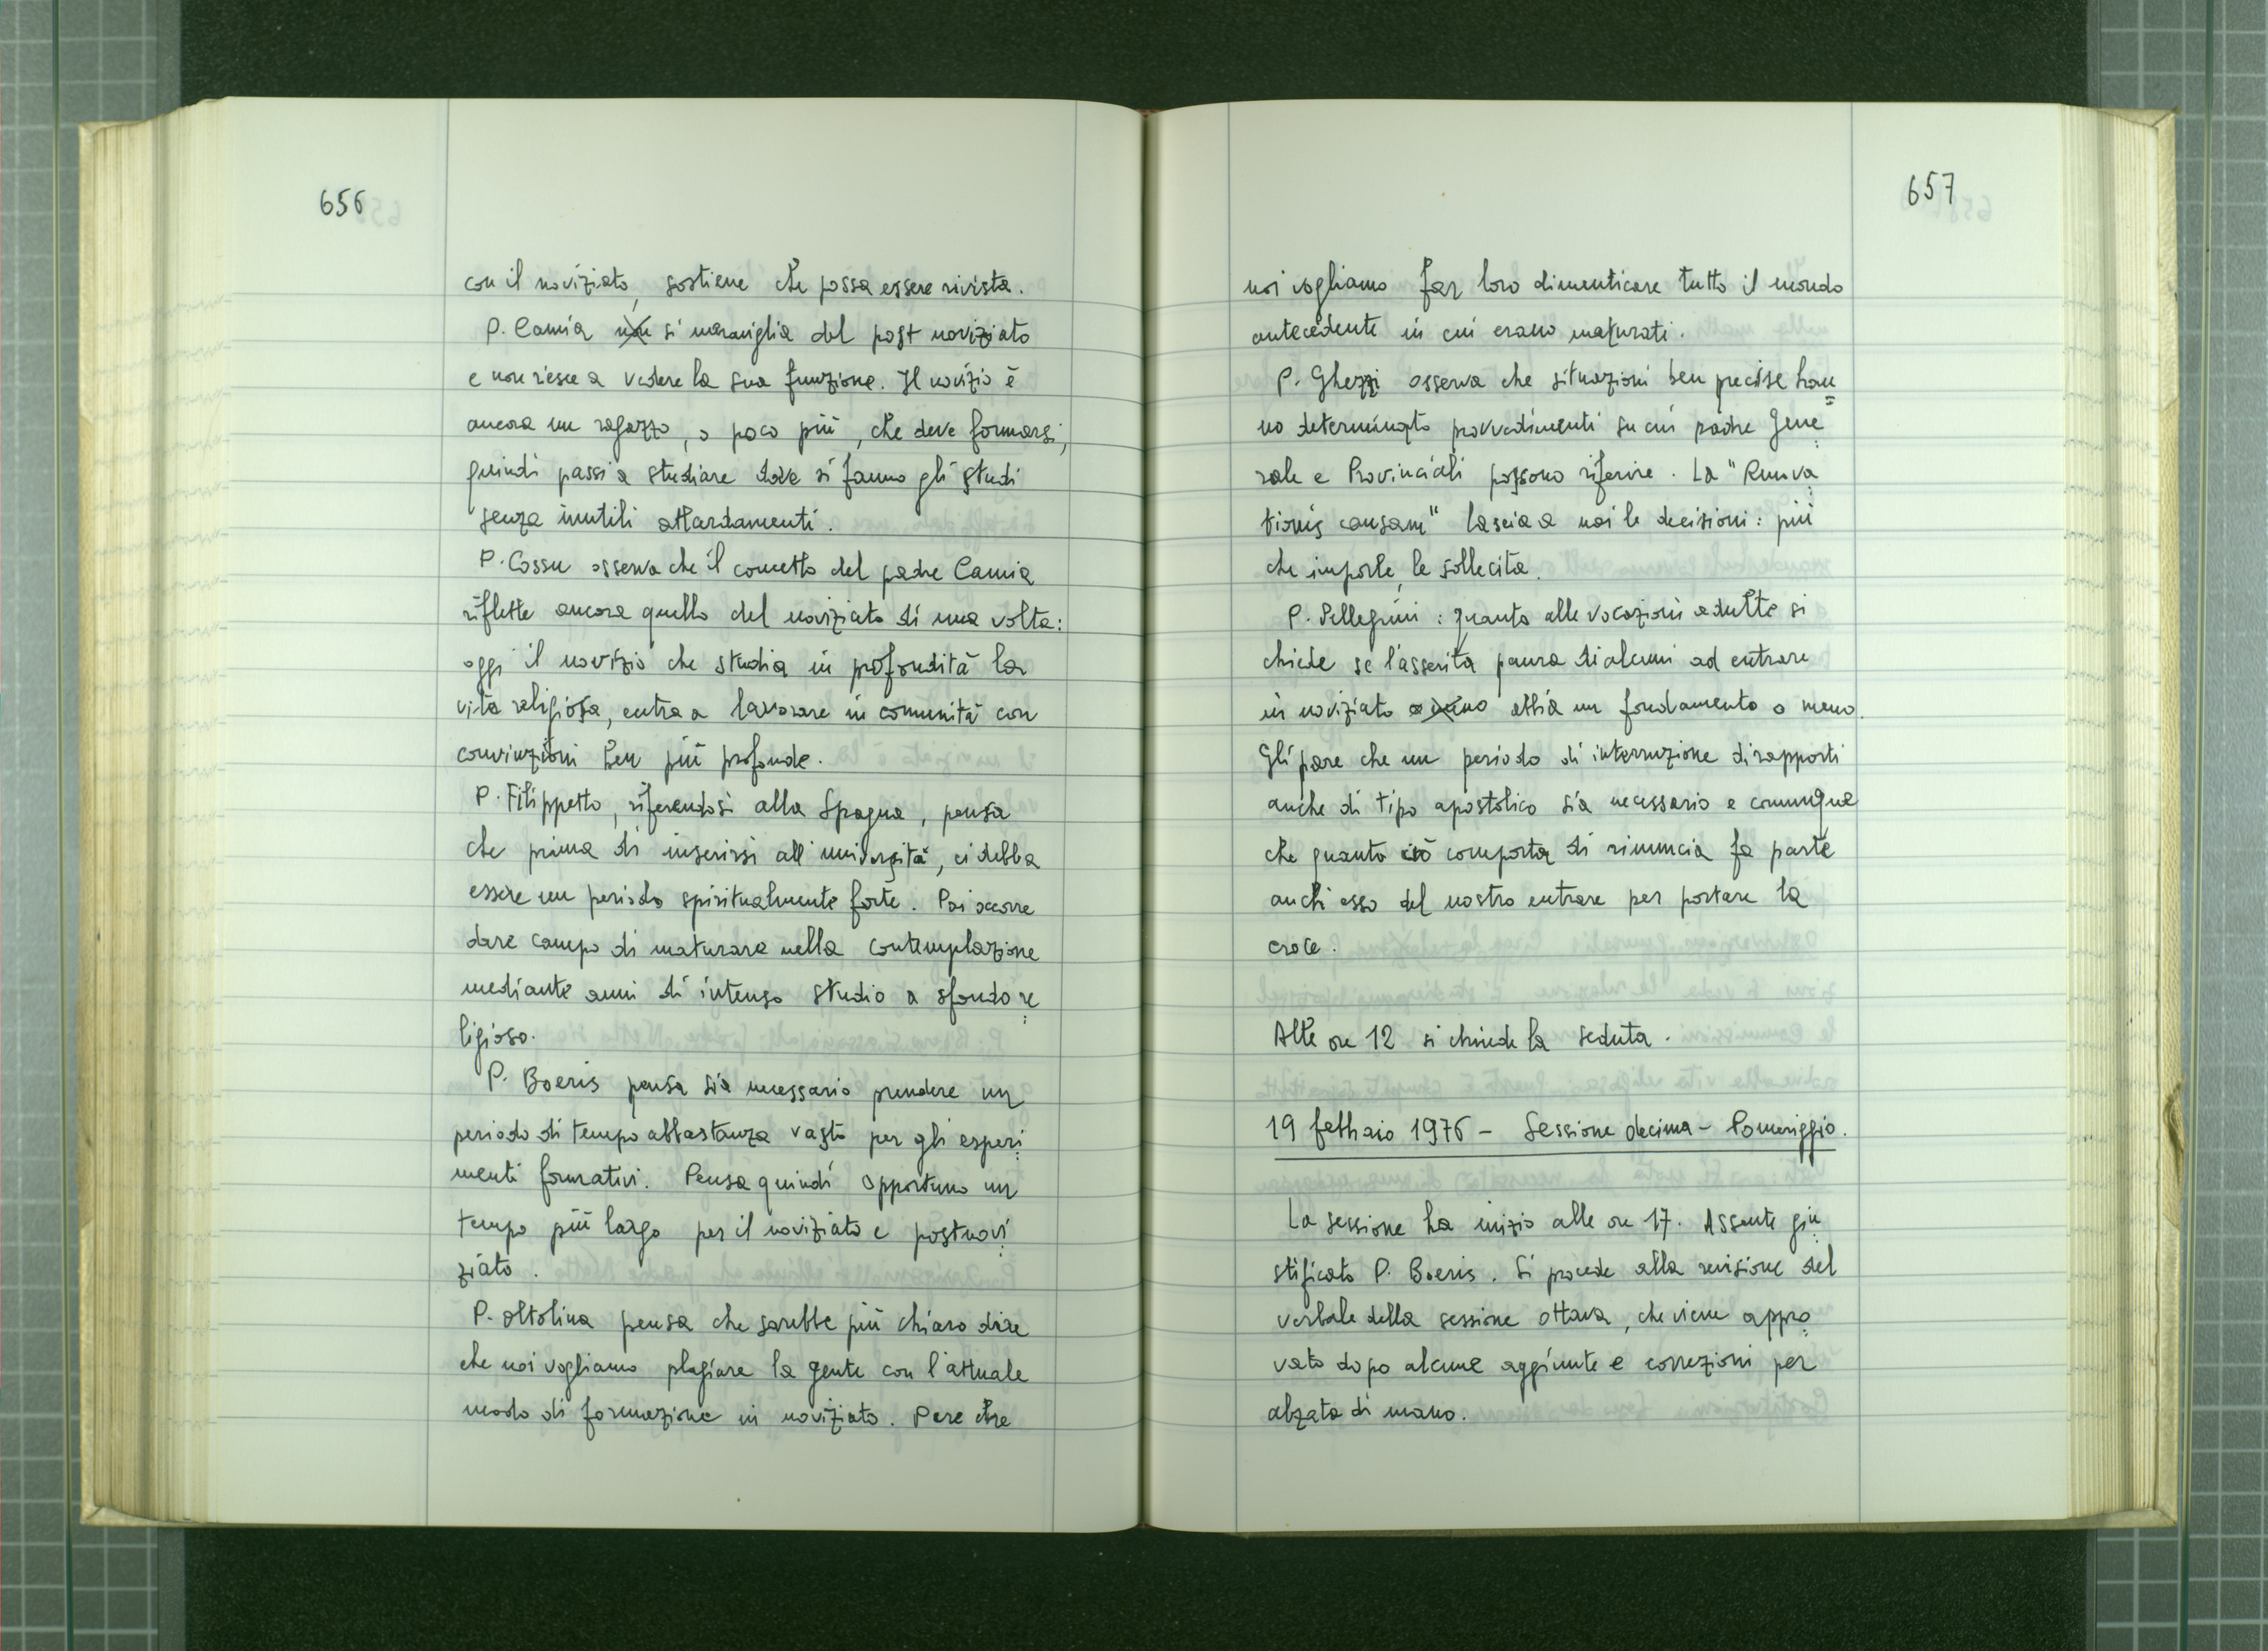 656
con il noviziato, sostiene che possa essere rivista.
P. Camia non si meraviglia del post noviziato
e non riesce a vedere la sua funzione. Il novizio è
ancora un ragazzo, o poco più, che deve formarsi,
quindi passi a studiare dove si fanno gli studi
senza inutili attardamenti.
P. Cossu osserva che il concetto del padre Camia
riflette ancora quello del noviziato di una volta:
oggi il novizio che studia in profondità la
vita religiosa, entra a lavorare in comunità con
convinzioni ben più profonde.
P. Filippetto, riferendosi alla Spagna, pensa
che prima di inserirsi all'università, ci debba
essere un periodo spiritualmente forte. Poi occorre
dare campo di maturare nella contemplazione
mediante anni di intenso studio a sfondo re
ligioso.
P. Boeris pensa sia necessario prendere un
periodo di tempo abbastanza vasto per gli esperi
menti formativi. Pensa quindi opportuno un
tempo più largo per il noviziato e postnovi
ziato.
P. Oltolina pensa che sarebbe più chiaro dire
che noi vogliamo plagiare la gente con l'attuale
modo di formazione in noviziato. Pare che
657
noi vogliamo far loro dimenticare tutto il mondo
antecedente in cui erano maturati.
P. Ghezzi osserva che situazioni ben precise han=
no determinato provvedimenti su cui padre Gene
rale e Provinciali possono riferire. La "Renova
tionis causam" lascia a noi le decisioni: più
che imporle, le sollecita.
P. Pellegrini: quanto alle vocazioni adulte si
chiede se l'asserita paura di alcuni ad entrare
in noviziato abbia un fondamento o meno.
Gli pare che un periodo di interruzione di rapporti
anche di tipo apostolico sia necessario e comunque
che quanto ciò comporta di rinuncia fa parte
anch'esso del nostro entrare per portare la
croce.
Alle ore 12 si chiude la seduta.
19 febbraio 1976 - Sessione decima - Pomeriggio.
La sessione ha inizio alle ore 17. Assente giu
stificato P. Boeris. Si procede alla revisione del
verbale della sessione ottava, che viene appro
vato dopo alcune aggiunte e correzioni per
alzata di mano.